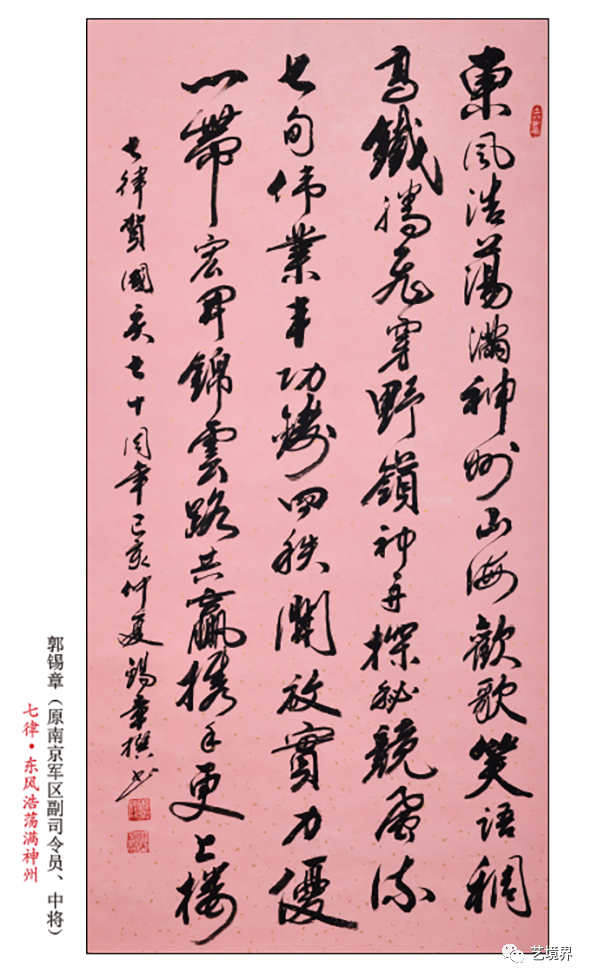 東風浩蕩滿神州山海歡歌笑語稠
高鐵騰飛穿野嶺神舟探秘競風流
七旬偉業丰功鑄四秩開放實力優
一帶宏錦雲路共贏携手更上樓
七律賀國慶七十周年己亥仲夏錫章撰书
郭锡章（原南京军区副司令员、中将）
七律·东风浩荡满神州
艺境界